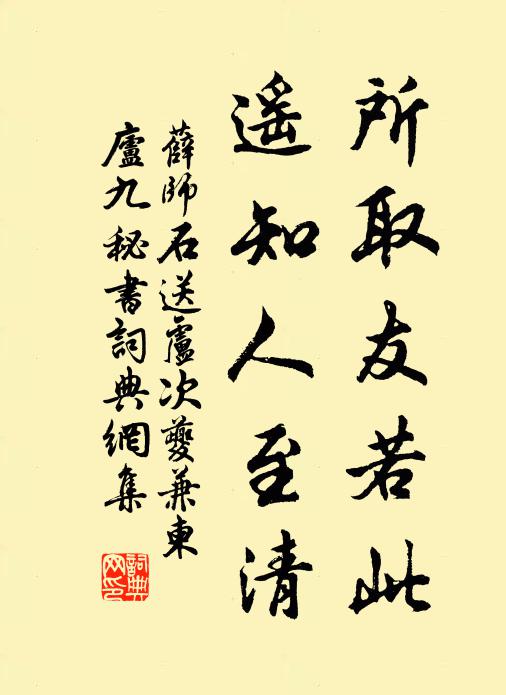 所取友若此
遥知人至清
薛師石送盧次夔兼東
廬九秘書詞典網集
詞典
网印